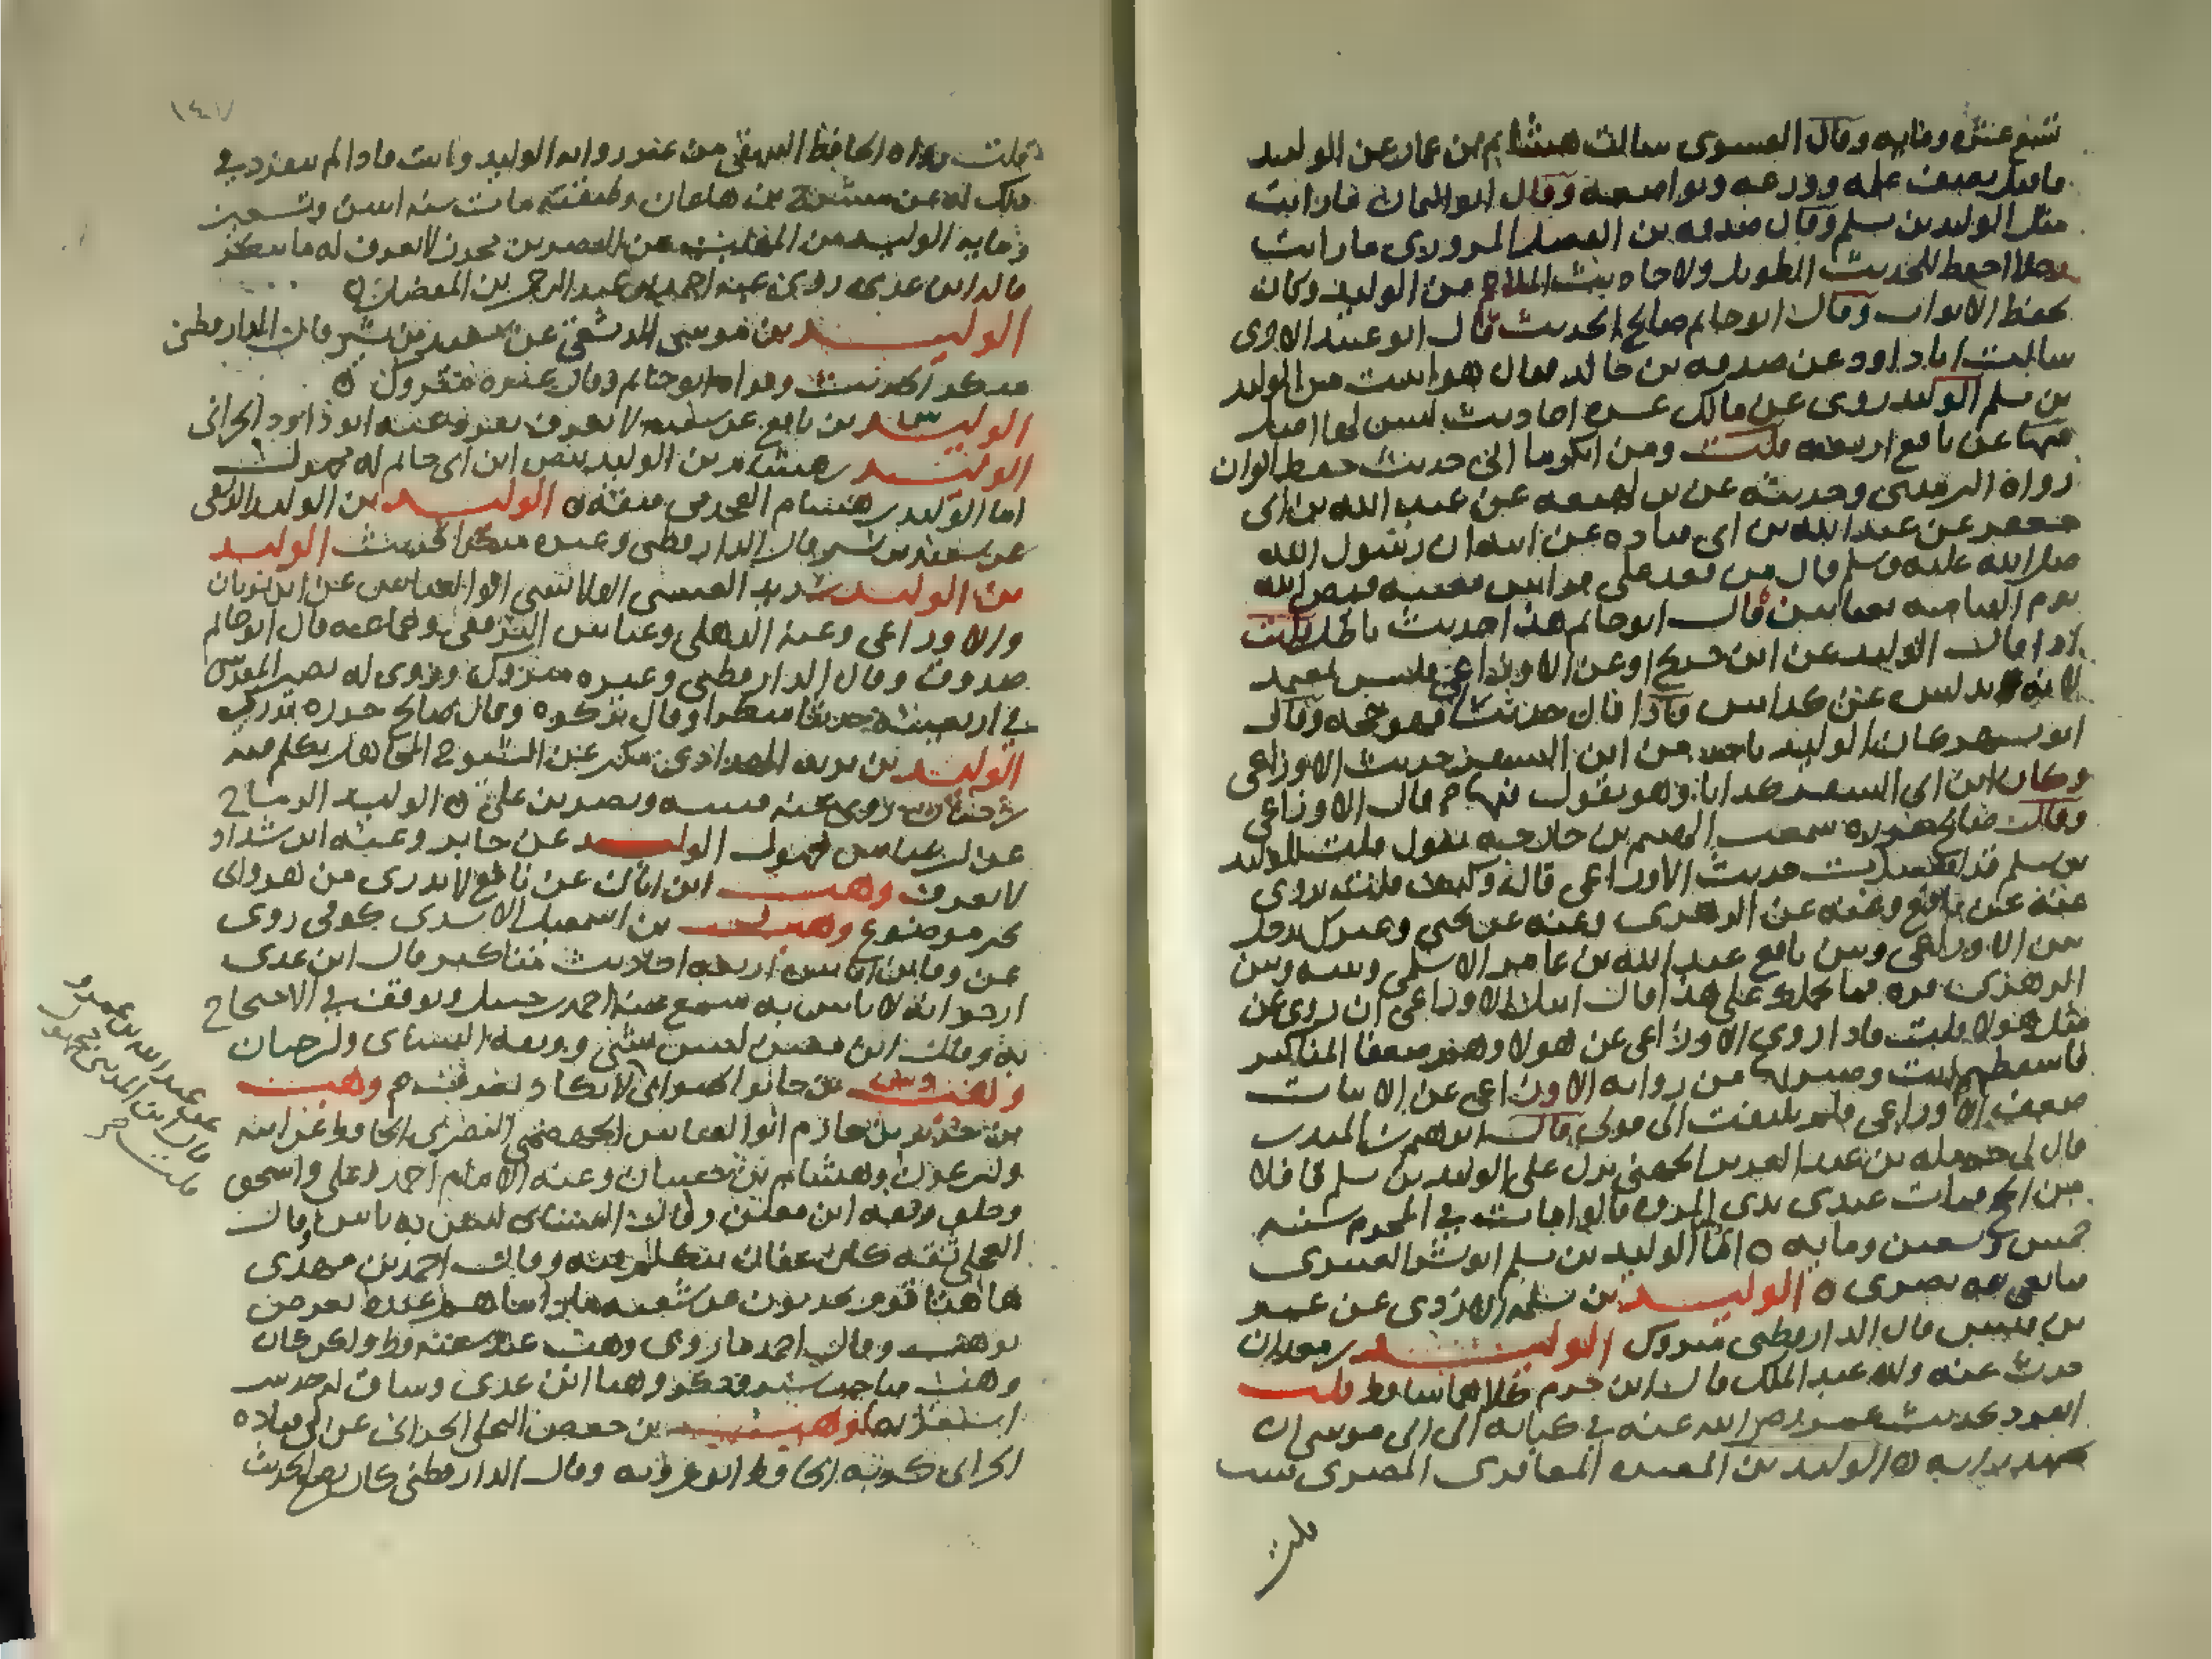 تسع عشرة ومايه وقال الفسوى سالت هشام بن عمار عن الوليد
فاقبل يصف علمه وورعه وتواضعه وقال ابو اليمان ما رايت
مثل الوليد بن مسلم وقال صدقه بن الفضل المروزى ما رايت
رجلا احفظ للحديث الطويل ولاحاديث الملاحم من الوليد وكان
يحفظ الابواب وقال ابو حاتم صالح الحديث قال ابو عبيد الاجرى
سالت ابا داود عن صدقه بن خالد فقال هو اثبت من الوليد
بن مسلم الوليد روى عن مالك عشره احاديث ليس لها اصل
منها عن نافع اربعه قلت ومن انكر ما اتى حديث حفظ القران
رواه الترمذى وحديثه عن بن لهيعه عن عبيد الله بن ابى
جعفر عن عبد الله بن ابى قتاده عن ابيه ان رسول الله
صلى الله عليه وسلم قال من قعد على فراش مغيبه قيض الله
يوم القيامه ثعبانين قال ابو حاتم هذا حديث باطل قلت
اذا قال الوليد عن ابن جريج او عن الاوزاعى فليس بمعتمد
لانه يدلس عن كذابين فاذا قال حدثنا فهو حجه وقال
ابو مسهر كان الوليد ياخذ من ابن السفر حديث الاوزاعى
وكان ابن ابى السفر كذابا وهو يقول فيها قال الاوزاعى
وقال صالح جزره سمعت الهيثم بن خارجه يقول قلت للوليد
بن مسلم قد افسدت حديث الاوزاعى قال وكيف قلت تروى
عنه عن نافع وعنه عن الزهرى وعنه عن يحيى وغيرك يدخل
بين الاوزاعى وبين نافع عبد الله بن عامر الاسلمى وبينه وبين
الزهرى قره فما يحملك على هذا قال انبل الاوزاعى ان يروى عن
مثل هولا قلت فاذا روى الاوزاعى عن هولا وهم ضعفا المناكير
فاسقطتهم انت وصيرتها من روايه الاوزاعى عن الاثبات
ضعف الاوزاعى فلم يلتفت الى قولى قال ابو هيم بن المنذر
قال لى حرمله بن عبد العزيز الجهنى نزل على الوليد بن مسلم قافلا
من الحج فمات عندى بذى المروه قالوا مات فى المحرم سنه
خمس وتسعين ومايه ه اما الوليد بن مسلم ابو بشر العنبرى
فتابعى ثقه بصرى ه الوليد بن سلمه الازدى عن عمر
بن قيس قال الدارقطنى متروك الوليد بن معدان
حدث عنه ولده عبد الملك قال ابن حزم كلاهما ساقط قلت
انفرد بحديث عمر رضى الله عنه فى كتابه الى ابى موسى ان
ه الوليد بن المغيره المعافرى المصرى
قلت
١٤٧
قلت رواه الحافظ البيهقى من غير روايه الوليد وانت فاذا لم ينفرد
بذلك له عن مشرح بن هاعان وطبقته مات سنه اثنين وتسعين
ومايه الوليد بن المهلب عن النضر بن محرز لا يعرف له ما ينكر
قاله ابن عدى روى عنه احمد بن عبد الرحمن بن المفضل ه
الوليد بن موسى الدمشقى عن سعيد بن بشير قال الدارقطنى
منكر الحديث وقواه ابو حاتم وقال غيره متروك ه
الوليد بن نافع عن شعبه لا يعرف تفرد عنه ابو داود الحرانى
الوليد بن هشام بن الوليد بنص ابن ابى حاتم له مجهول
اما الوليد بن هشام القحذمى فثقه ه الوليد بن الوليد الدمشقى
عن سعيد بن بشير قال الدارقطنى وغيره منكر الحديث الوليد
بن الوليد بن زيد العنسى القلانسى ابو العباس عن ابن ثوبان
والاوزاعى وعنه الذهلى وعباس الترقفى وجماعه قال ابو حاتم
صدوق وقال الدارقطنى وغيره متروك وروى له نصر المقدسى
فى اربعينه حديثا منكرا وقال تركوه وقال صالح جزره قدرى
الوليد بن يزيد الهدادى مكثر عن الشيوخ المجاهيل تكلم فيه
روى عنه ونصر بن على ه الوليد الرماح
عن ابن عباس مجهول الوليد عن جابر وعنه ابن شداد
لا يعرف وهب ابن ابان عن نافع لا يدرى من هو واتى
بخبر موضوع وهب بن اسمعيل الاسدى كوفى روى
عن وقا بن اياس اربعه احاديث مناكير قال ابن عدى
ارجو انه لا باس به سمع منه احمد بن حنبل وتوقف فى الاحتجاج
به وقال ابن معين ليس بشى ووثقه النسائى وابن حبان
وهب بن جابر الخيوانى لا يكاد يعرف وهب
بن جرير بن حازم ابو العباس الجهضمى البصرى الحافظ عن ابيه
وابن عون وهشام بن حسان وعنه الامام احمد وعلى واسحق
وخلق وثقه ابن معين وقال النسائى ليس به باس وقال
العجلى ثقه كان عفان يتكلم فيه وقال احمد بن مهدى
هاهنا قوم يحدثون عن شعبه ما راينا هم عنده يعرض
بوهب وقال احمد ما روى وهب عن شعبه قط ولكن كان
وهب صاحب سنه وذكره ابن عدى وساق له حديث
استغربه وهب بن حفص البجلى الحرانى عن ابى قتاده
الحرانى كذبه الحافظ ابو عروبه وقال الدارقطنى كان يضع الحديث
عن عبد الله بن عمرو
قال ابن المدينى مجهول
قلت